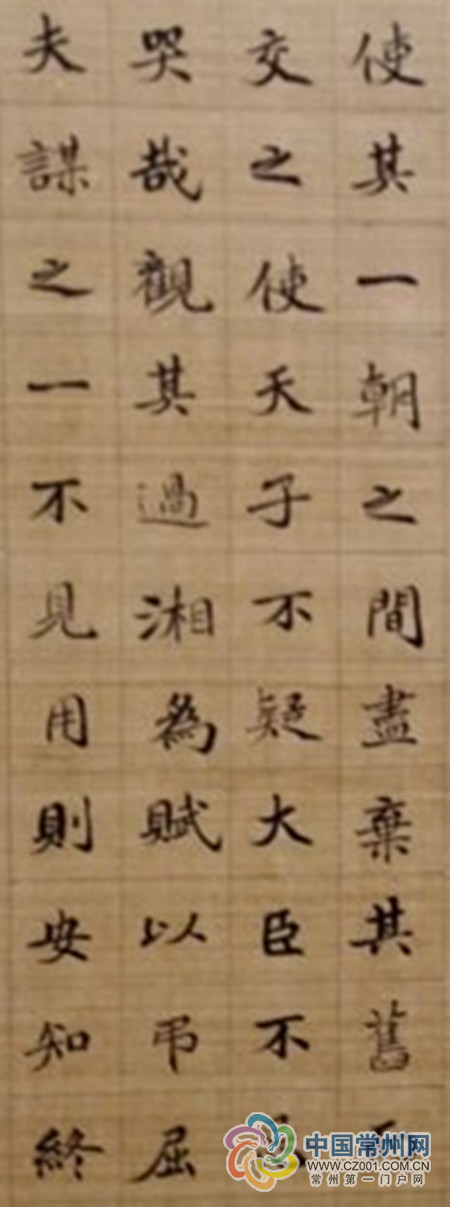 使其一朝之間盡棄其舊
交之使天子不疑大臣不
哭哉觀其過湘為賦以吊屈
夫謀之一不見用則安知終
中国常州网
WWW.CZ001.COM.CN
常州第一门户网